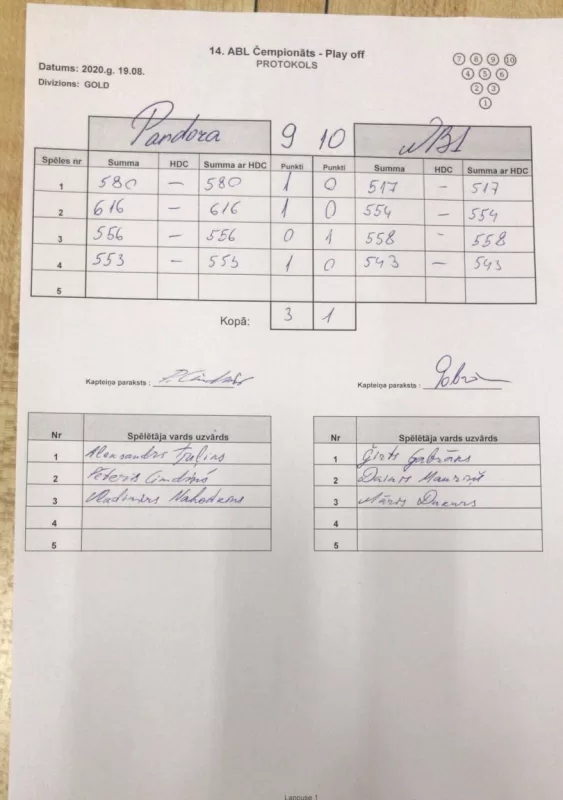 14. ABL Čempionāts - Play off
PROTOKOLS
Datums: 2020.g. 19.08.
Divizions: GOLD
7 8 9 10
4 5 6
2 3
1
Pandora 9 10 WBL
Spēles nr Summa HDC Summa ar HDC Punkti Punkti Summa HDC Summa ar HDC
1 580 – 580 1 0 517 – 517
2 616 – 616 1 0 554 – 554
3 556 – 556 0 1 558 – 558
4 553 – 553 1 0 543 – 543
5
Kopā: 3 1
Kapteiņa paraksts : Kapteiņa paraksts :
Nr Spēlētāja vards uzvārds Nr Spēlētāja vards uzvārds
1 Aleksandrs 1 Ģirts Gabrāns
2 Pēteris Cimdiņš 2 Dainis Mauriņš
3 Vladimirs 3 Māris
4 4
5 5
Lappuse 1